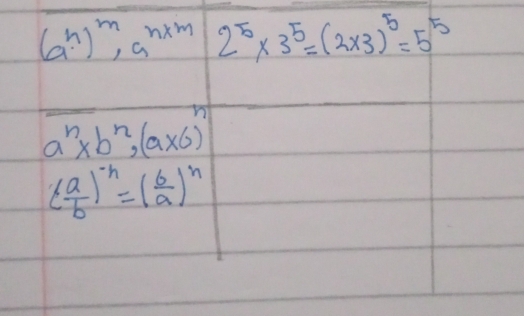 (aⁿ)ᵐ, aⁿˣᵐ 2⁵ × 3⁵ = (2×3)⁵ = 5⁵
aⁿ×bⁿ, (a×b)ⁿ
(a/b)⁻ⁿ = (b/a)ⁿ